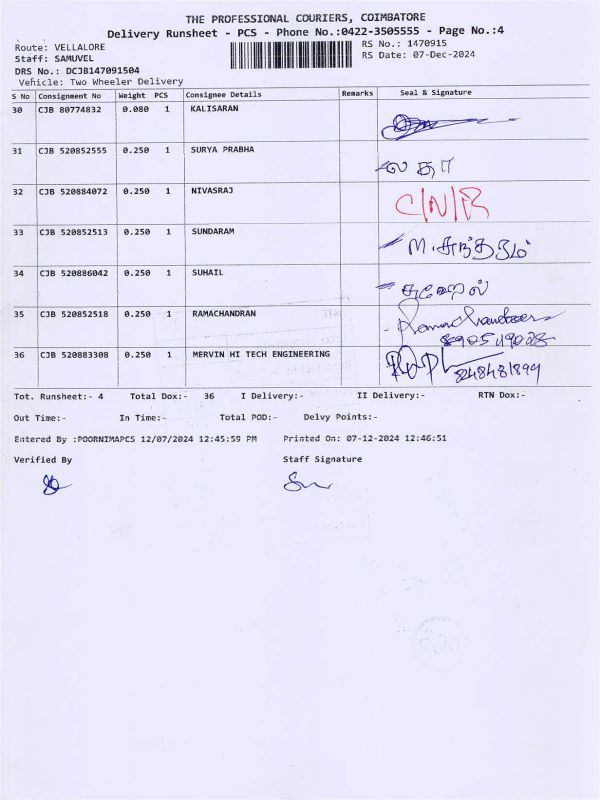 THE PROFESSIONAL COURIERS, COIMBATORE
Delivery Runsheet - PCS - Phone No.:0422-3505555 - Page No.:4
Route: VELLALORE RS No.: 1470915
Staff: SAMUVEL RS Date: 07-Dec-2024
DRS No.: DCJB147091504
Vehicle: Two Wheeler Delivery
S No Consignment No Weight PCS Consignee Details Remarks Seal & Signature
30 CJB 80774832 0.080 1 KALISARAN
31 CJB 520852555 0.250 1 SURYA PRABHA லதா
32 CJB 520884072 0.250 1 NIVASRAJ C/N/R
33 CJB 520852513 0.250 1 SUNDARAM M.சுந்தரம்
34 CJB 520886042 0.250 1 SUHAIL சுஹைல்
35 CJB 520852518 0.250 1 RAMACHANDRAN
36 CJB 520883308 0.250 1 MERVIN HI TECH ENGINEERING
Tot. Runsheet:- 4 Total Dox:- 36 I Delivery:- II Delivery:- RTN Dox:-
Out Time:- In Time:- Total POD:- Delvy Points:-
Entered By :POORNIMAPCS 12/07/2024 12:45:59 PM Printed On: 07-12-2024 12:46:51
Verified By Staff Signature